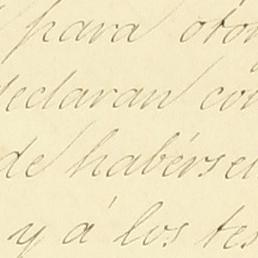 para otor
declaran con
de habérsel
y á los tes